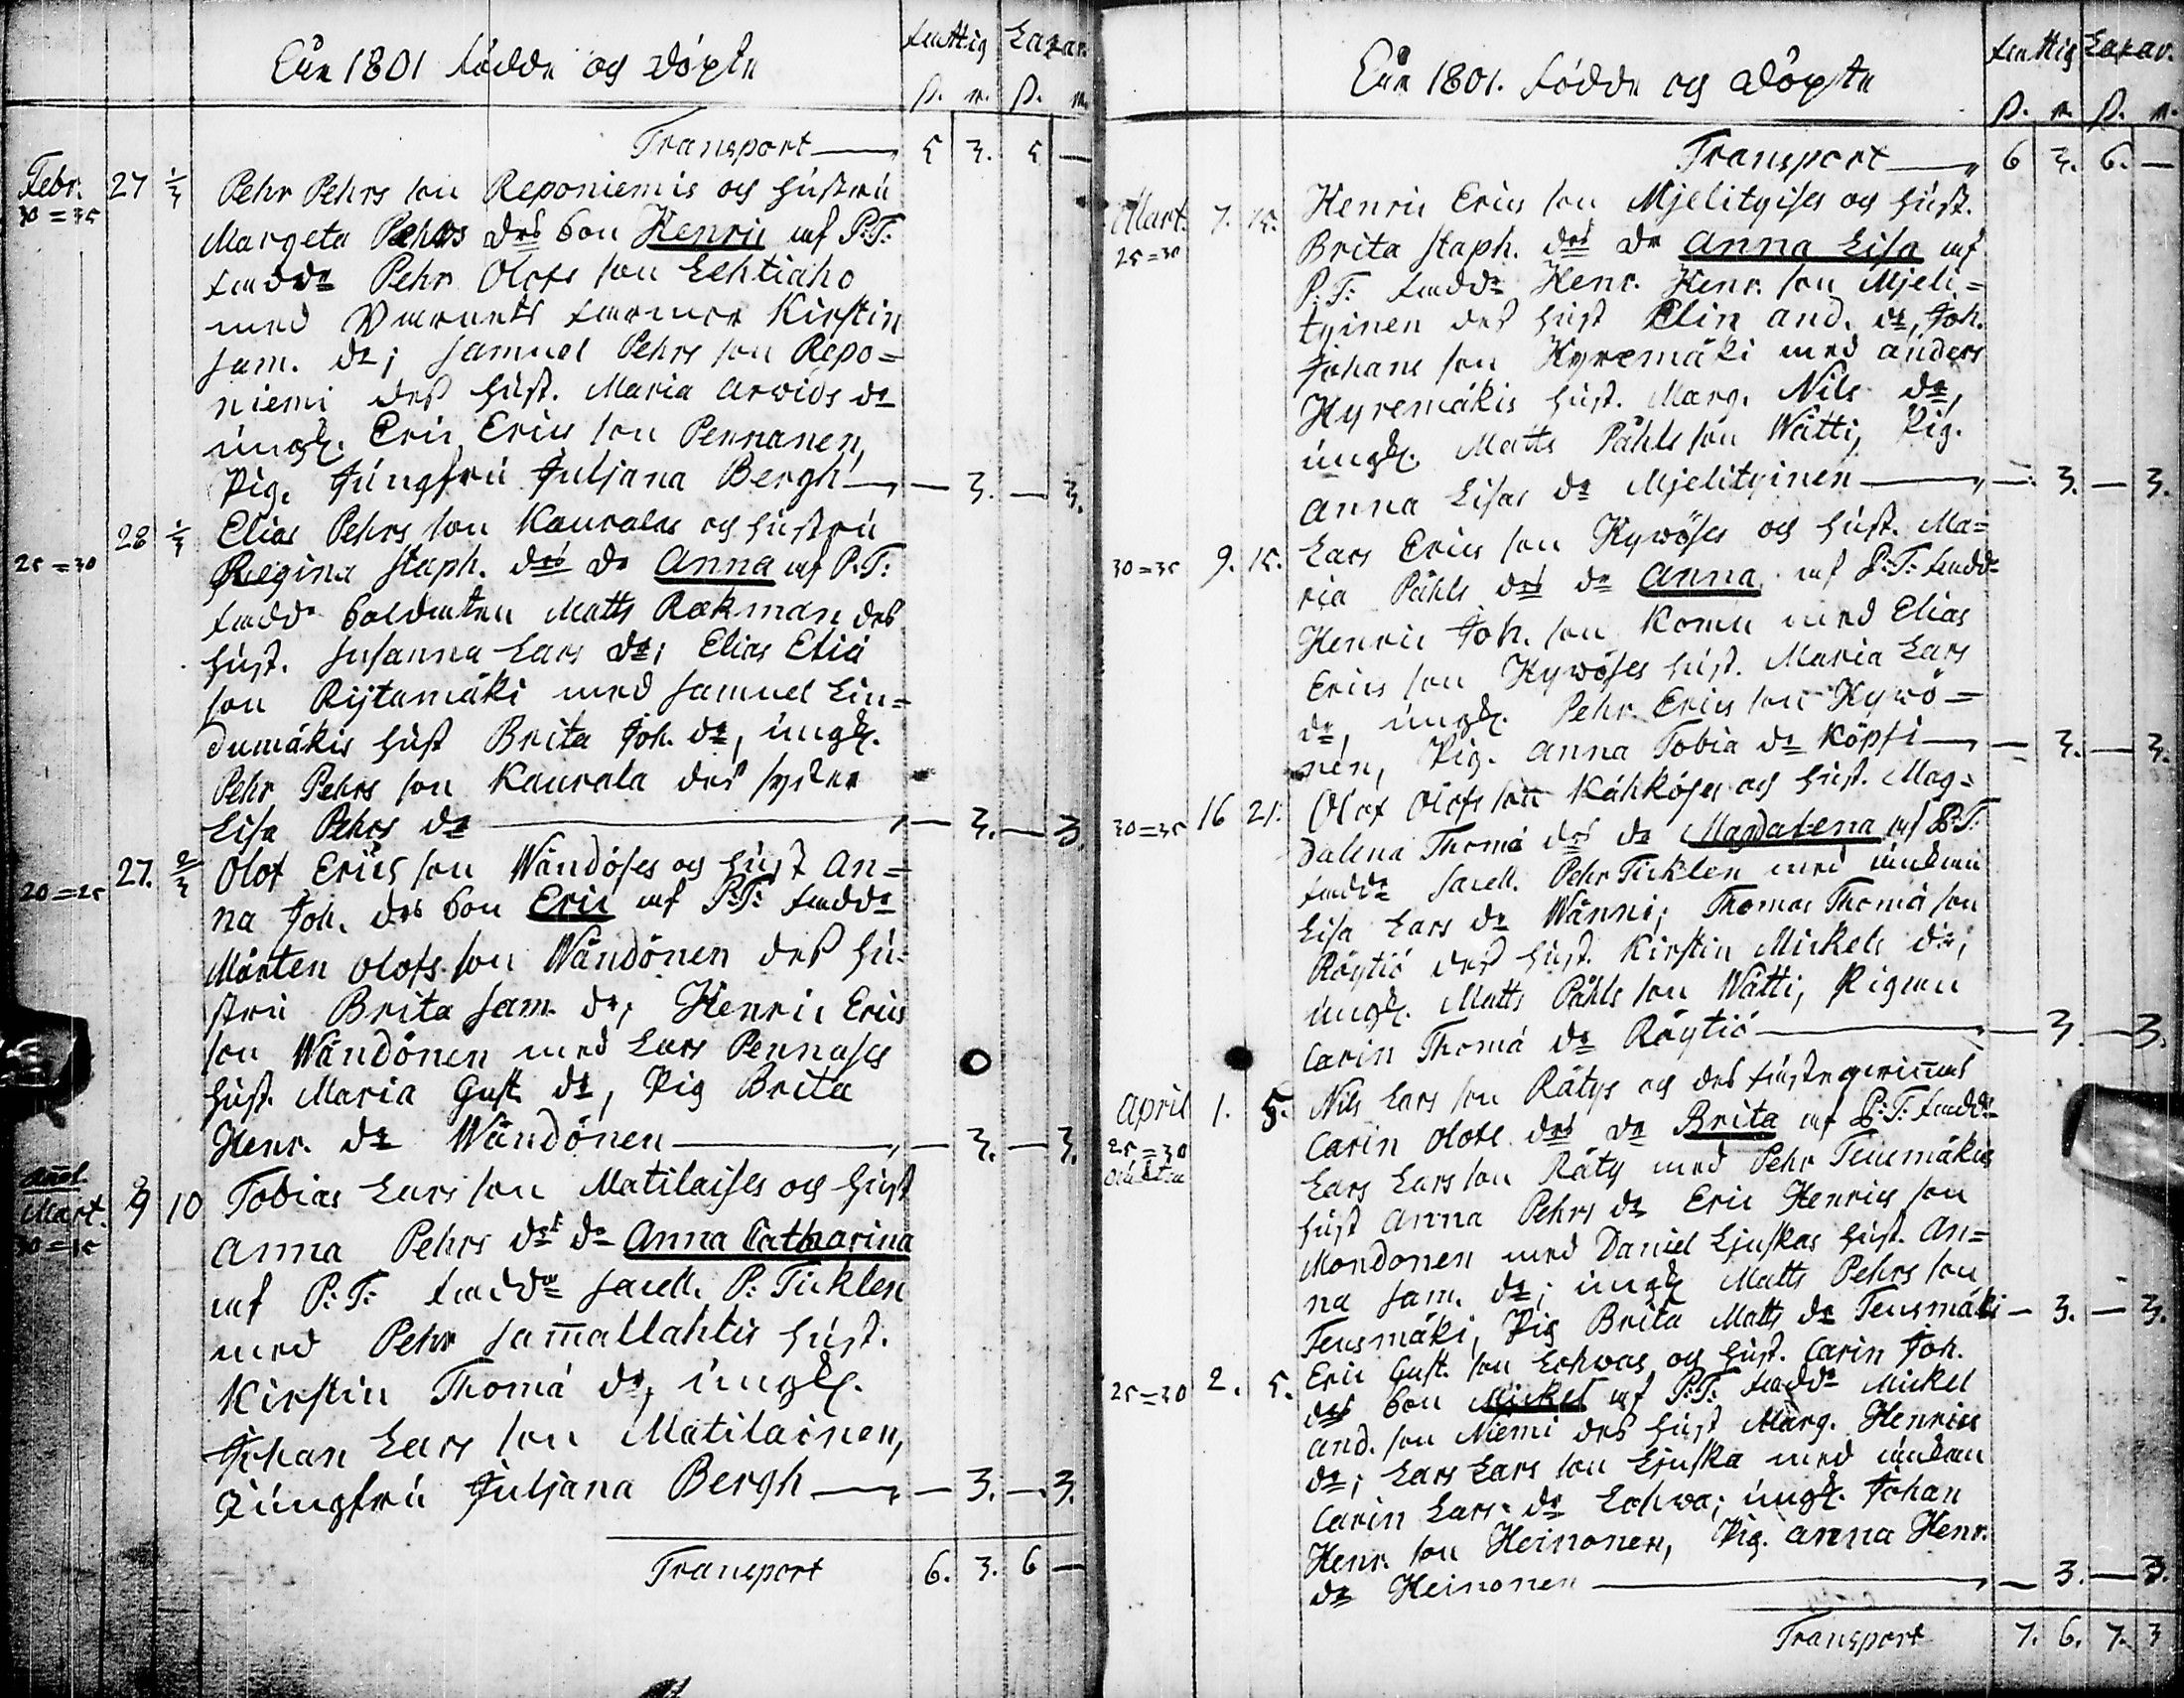 Fattig Lazar.
Åhr 1801 födde och döpte
ß. r. ß. r.
Transport — 5 3. 5 —
Febr. 27 1/3 Pehr Pehrs son Reponiemis och hustru
30=35 Margeta Påhls drs Son Henric af P:T:
fadd. Pehr Olofs son Lehtiaho
med farmor Kirstin
Sam. dr; Samuel Pehrs son Repo=
niemi des hust. Maria Arvids dr
ungk. Eric Erics son Pennanen,
Pig. Jungfru Juljana Bergh — — 3. — 3.
28 1/3 Elias Pehrs son Kauralas och hustru
25=30 Regina Staph. drs dr Anna af P.T:
fadd. Soldaten Matts Rokman des
hust. Susanna Lars dr; Elias Eliæ
son Rijtamäki med Samuel Lin=
dumäkis hust Brita Joh. dr, ungk.
Pehr Pehrs son Kaurala des syster
Lisa Pehrs dr — — 3. — 3.
27. 2/3 Olof Erics son Wändöses och hust An=
20=25 na Joh. drs Son Eric af P:T: fadd.
Mårten Olofs son Wändönen des hu=
stru Brita Sam. dr; Henric Erics
son Wändönen med Lars Pennases
hust. Maria Gust. dr, Pig Brita
Henr. dr Wändönen — — 3. — 3.
Mart. 9 10 Tobias Lars son Matilaises och hust
30=35 Anna Pehrs drs dr Anna Catharina
af P:T: fadd. Sacell. P: Ticklen
med Pehr Sam̄allahtis hust.
Kirstin Thomæ dr, ungk.
Johan Lars son Matilainen,
Jungfru Juljana Bergh — — 3. — 3.
Transport 6. 3. 6 —
Fattig Lazar.
Åhr 1801. födde och döpte
ß. r. ß. r.
Transport — 6 3. 6. —
Mart. 7. 15. Henric Erics son Mjelityises och hust.
25=30 Brita Staph. drs dr Anna Lisa af
P:T: fadd. Henr. Henr. son Mjeli=
tyinen des hust Elin And. dr, Joh.
Johans son Hyremäki med Anders
Hyremäkis hust. Marg. Nils dr,
ungk. Matts Påhls son Wätti, Pig.
Anna Lisas dr Mjelityinen — — 3. — 3.
30=35 9. 15. Lars Erics son Hywöses och hust. Ma=
ria Påhls drs dr Anna af P:T: fadd.
Henric Joh. son Komu med Elias
Erics son Hywöses hust. Maria Lars
dr, ungk. Pehr Erics son Hywö=
nen, Pig. Anna Tobiæ dr Köpsi — — 3. — 3.
30=35 16 21. Olof Olofs son Kähköses och hust. Mag=
dalena Thomæ drs dr Magdalena af P:T:
fadd. Sacell. Pehr Ticklen med änkan
Lisa Lars dr Wänni; Thomas Thomæ son
Röytiö des hust. Kirstin Mickels dr;
ungk. Matts Påhls son Wätti, Pigan
Carin Thomæ dr Röytiö — — 3. — 3.
April 1. 5. Nils Lars son Rätys och des
25=30 Carin Olofs drs dr Brita af P:T: fadd.
Lars Lars son Räty med Pehr Teusmäkis
hust Anna Pehrs dr Eric Henrics son
Mondonen med Daniel Ljuskas hust. An=
na Sam. dr; ungk Matts Pehrs son
Teusmäki, Pig Brita Matts dr Teusmäki — 3. — 3.
25=30 2. 5. Eric Gust. son Lohwas och hust. Carin Joh.
drs Son Mickel af P:T: fadd. Mickel
And. son Niemi des hust Marg. Henrics
dr; Lars Lars son Ljuska med änkan
Carin Lars dr Lohwa; ungk. Johan
Henr. son Heinonen, Pig. Anna Henr.
dr Heinonen — — 3. — 3.
Transport 7. 6. 7. 3